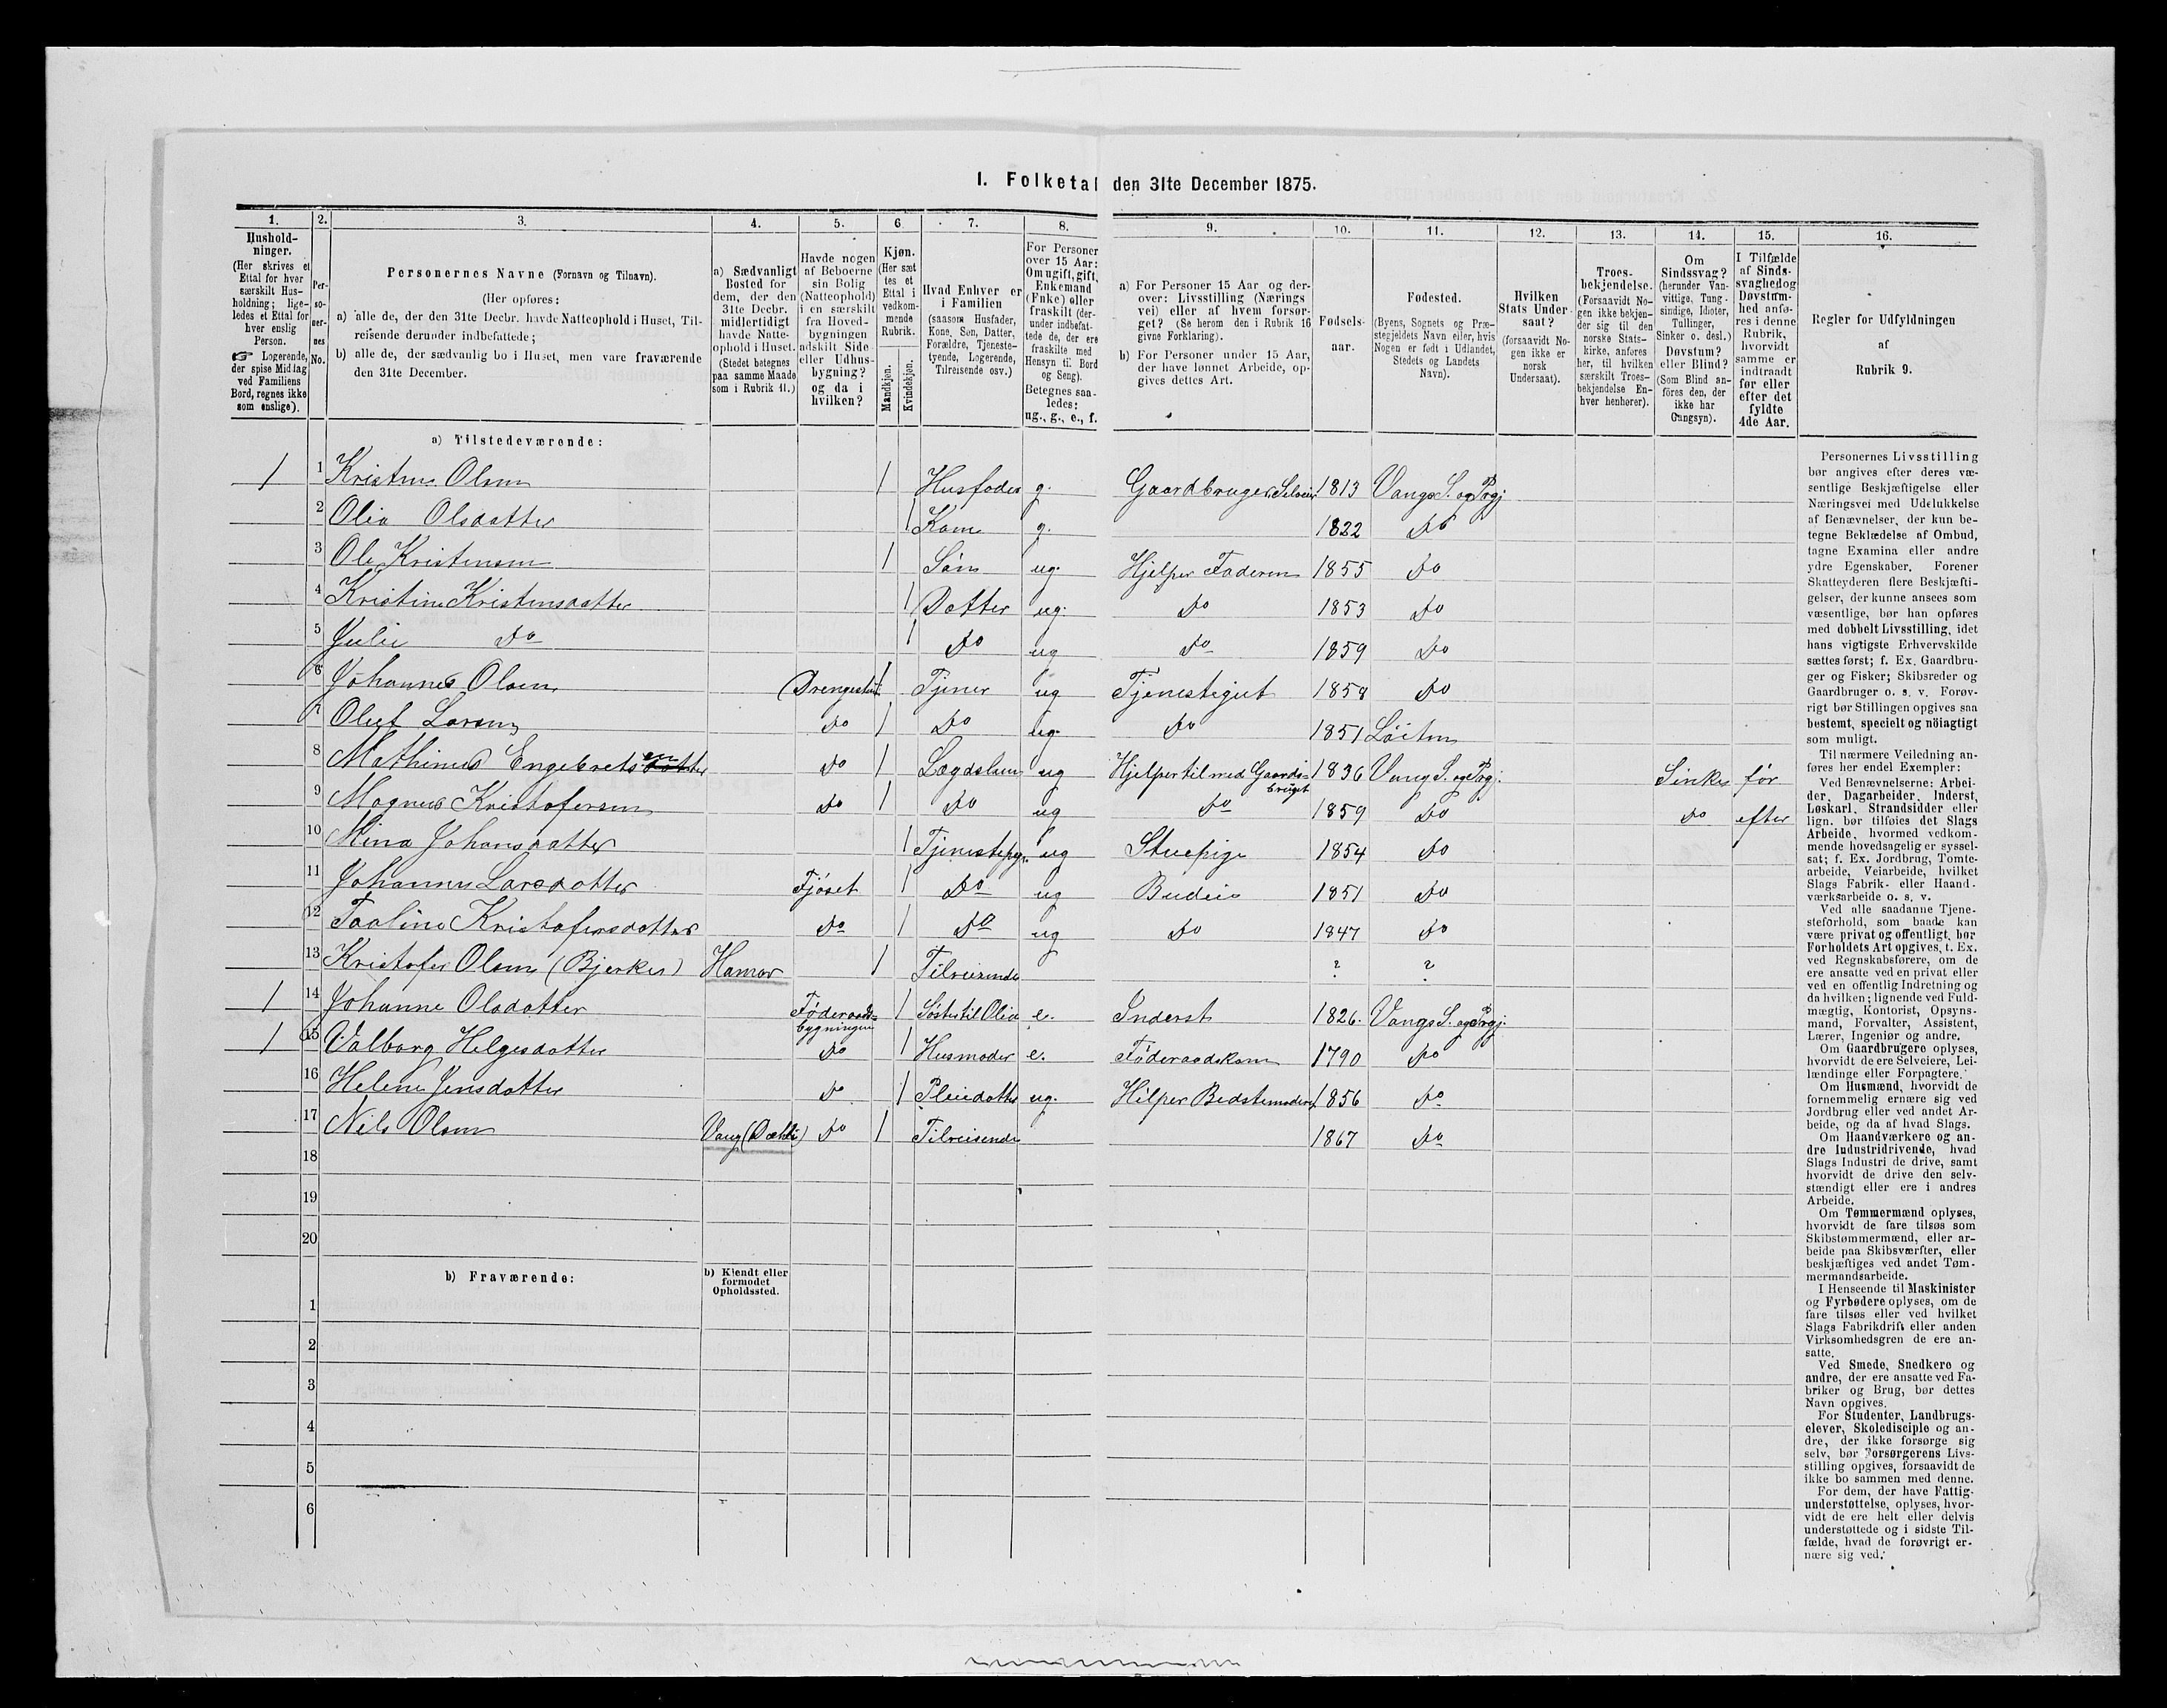 1. Folketal den 31te December 1875.
1. 2. 3. 4. 5. 6 7. 8. 9. 10. 11. 12. 13. 14. 15. 16.
Hushold-
ninger.
(Her skrives et
Ettal for hver
særskilt Hus-
holdning; lige-
ledes et Ettal for
hver enslig
Person.
☞ Logerende,
der spise Middag
ved Familiens
Bord, regnes ikke
som enslige).
Per-
so-
ner-
nes
No.
Personernes Navne (Fornavn og Tilnavn).
(Her opføres:
a) alle de, der den 31te Decbr. havde Natteophold i Huset, Til-
reisende derunder indbefattede;
b) alle de, der sædvanlig bo i Huset, men vare fraværende
den 31te December.
a) Sædvanligt
Bosted for
dem, der den
31te Decbr.
midlertidigt
havde Natte-
ophold i Huset.
(Stedet betegnes
paa samme Maade
som i Rubrik 11.)
Havde nogen
af Beboerne
sin Bolig
(Natteophold)
i en særskilt
fra Hoved-
bygningen
adskilt Side-
eller Udhus-
bygning?
og da i
hvilken?
Kjøn.
(Her sæt
tes et
Ettal i
vedkom-
mende
Rubrik.
Mandkjøn.
Kvindekjøn.
Hvad Enhver er
i Familien
(saasom Husfader,
Kone, Søn, Datter,
Forældre, Tjeneste-
tyende, Logerende,
Tilreisende osv.)
For Personer
over 15 Aar:
Om ugift, gift,
Enkemand
(Enke) eller
fraskilt (der-
under indbefat-
tede de, der ere
fraskilte med
Hensyn til Bord
og Seng).
Betegnes saa-
ledes:
ug., g., e., f.
a) For Personer 15 Aar og der-
over: Livsstilling (Nærings
vei) eller af hvem forsør-
get? (Se herom den i Rubrik 16
givne Forklaring).
b) For Personer under 15 Aar,
der have lønnet Arbeide, op-
gives dettes Art.
Fødsels-
aar.
Fødested.
(Byens, Sognets og Præ-
stegjeldets Navn eller, hvis
Nogen er født i Udlandet,
Stedets og Landets
Navn).
Hvilken
Stats Under-
saat?
(forsaavidt No-
gen ikke er
norsk
Undersaat).
Troes-
bekjendelse.
(Forsaavidt No-
gen ikke bekjen-
der sig til den
norske Stats-
kirke, anføres
her, til hvilken
særskilt Troes-
bekjendelse En-
hver henhører).
Om
Sindssvag?
(herunder Van-
vittige, Tung-
sindige, Idioter,
Tullinger,
Sinker o. desl.)
Døvstum?
eller Blind?
(Som Blind an-
föres den, der
ikke har
Gangsyn).
I Tilfælde
af Sinds-
svaghed og
Døvstum-
hed anfø-
res i denne
Rubrik,
hvorvidt
samme er
indtraadt
før eller
efter det
fyldte
4de Aar.
Regler for Udfyldningen
af
Rubrik 9.
a) Tilstedeværende:
1 1 Kristen Olsen 1 Husfader g. Gaardbruger Selveier 1813 Vangs S. og Prgj.
2 Olia Olsdatter 1 Kone g. 1822 Do
3 Ole Kristensen 1 Søn ug. Hjelper Faderen 1855 Do
4 Kristine Kristensdatter 1 Datter ug. Do 1853 Do
5 Julie Do 1 Do ug Do 1859 Do
6 Johannes Olsen Drengestuen 1 Tjener ug Tjenestegut 1858 Do
7 Oluf Larsen Do 1 Do ug. Do 1851 Löiten
8 Mathinus Engebretsen Do 1 Lægdslem ug Hjelper til med Gaards-
bruget 1836 Vang S. og Prgj. Sinke før
9 Magnus Kristofersen Do 1 Do ug Do 1859 Do Do efter
10 Mina Johansdatter 1 Tjenestepige ug Stuepige 1854 Do
11 Johanne Larsdatter Fjöset 1 Do ug Budeie 1851 Do
12 Taaline Kristofersdatter Do 1 Do ug Do 1847 Do
13 Kristofer Olsen (Bjerke) Hamar 1 Tilreisende ? ?
1 14 Johanne Olsdatter Føderaads-
bygningen 1 Søster til Olia e. Inderst 1826. Vangs S. og Prgj.
1 15 Valborg Helgesdatter Do 1 Husmoder e. Føderaadskone 1790 Do
16 Helene Jensdatter Do 1 Pleiedatter ug. Hilper Bedstemoderen 1856 Do
17 Nils Olsen Vang (Dæhli) Do 1 Tilreisende 1867 Do
18
19
20
b) Fraværende:
b) Kjendt eller
formodet
Opholdssted.
1
2
3
4
5
6
Personernes Livsstilling
bør angives efter deres væ-
sentlige Beskjæftigelse eller
Næringsvei med Udelukkelse
af Benævnelser, der kun be-
tegne Beklædelse af Ombud,
tagne Examina eller andre
ydre Egenskaber. Forener
Skatteyderen flere Beskjæfti-
gelser, der kunne ansees som
væsentlige, bør han opføres
med dobbelt Livsstilling, idet
hans vigtigste Erhvervskilde
sættes først; f. Ex. Gaardbru-
ger og Fisker; Skibsreder og
Gaardbruger o. s. v. Forøv-
rigt bør Stillingen opgives saa
bestemt, specielt og nöiagtigt
som muligt.
Til nærmere Veiledning an-
føres her endel Exempler:
Ved Benævnelserne: Arbei-
der, Dagarbeider, Inderst,
Løskarl, Strandsidder eller
lign. bør tilføies det Slags
Arbeide, hvormed vedkom-
mende hovedsagelig er syssel-
sat; f. Ex. Jordbrug, Tomte-
arbeide, Veiarbeide, hvilket
Slags Fabrik- eller Haand-
værksarbeide o. s. v.
Ved alle saadanne Tjene-
steforhold, som baade kan
være privat og offentligt, bør
Forholdets Art opgives, t. Ex.
ved Regnskabsførere, om de
ere ansatte ved en privat eller
ved en offentlig Indretning og
da hvilken; lignende ved Fuld-
mægtig, Kontorist, Opsyns-
mand, Forvalter, Assistent,
Lærer, Ingeniør og andre.
Om Gaardbrugere oplyses,
hvorvidt de ere Selveiere, Lei-
lændinge eller Forpagtere.
Om Husmænd, hvorvidt de
fornemmelig ernære sig ved
Jordbrug eller ved andet Ar-
beide, og da af hvad Slags.
Om Haandværkere og an-
dre Industridrivende, hvad
Slags Industri de drive, samt
hvorvidt de drive den selv-
stændigt eller ere i andres
Arbeide.
Om Tømmermænd oplyses,
hvorvidt de fare tilsøs som
Skibstømmermænd, eller ar-
beide paa Skibsværfter, eller
beskjæftiges ved andet Tøm-
mermandsarbeide.
I Henseende til Maskinister
og Fyrbødere oplyses, om de
fare tilsøs eller ved hvilket
Slags Fabrikdrift eller anden
Virksomhedsgren de ere an-
satte.
Ved Smede, Snedkere og
andre, der ere ansatte ved Fa-
briker og Brug, bør dettes
Navn opgives.
For Studenter, Landbrugs-
elever, Skoledisciple og an-
dre, der ikke forsørge sig
selv, bør Forsørgerens Livs-
stilling opgives, forsaavidt de
ikke bo sammen med denne.
For dem, der have Fattig-
understøttelse, oplyses, hvor-
vidt de ere helt eller delvis
understøttede og i sidste Til-
fælde, hvad de forøvrigt er-
nære sig ved.